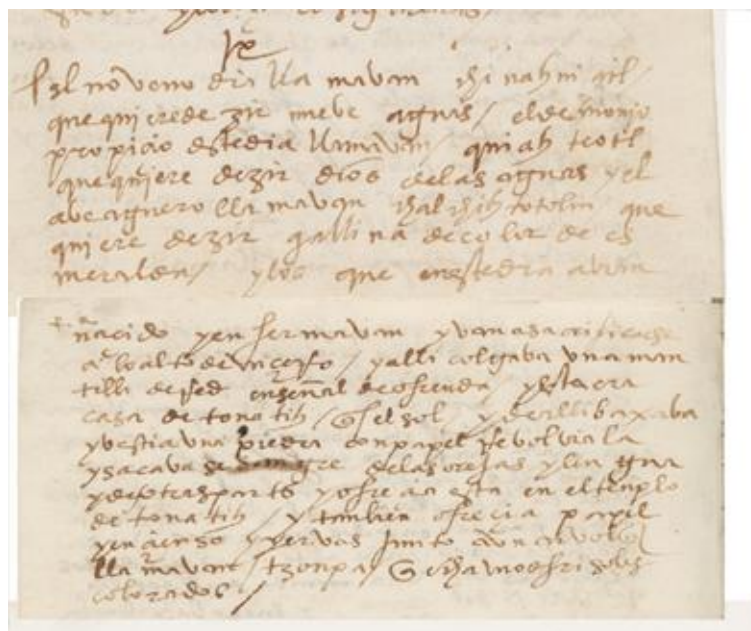 jx
El noveno dia llamavan chicnahui atl /
que quiere dezir nueve aguas / el demonio
propicio deste dia llamavan / quiah teotl
que quiere dezir dios de las aguas y el
abe aguero llamavan chalchih totolin que
quiere dezir gallina de color de es
meralda / y los que en este dia avian
nacido y enfermavan yvan a sacrificarse
a lo alto de un cerro / y alli colgava una man
tilla de red en señal de ofrenda / y esta era
casa de tonatih / el sol / y de alli baxava
y vestia una piedra con papel y rebolviala
y sacavase sangre de las orejas y lengua
y de otras partes y ofrecia esta en el templo
de tonatih / y tanbien ofrecia papel
y ençienso y yervas junto a un arvol q
llamavan / tzonpa / q echa unos frisoles
colorados /